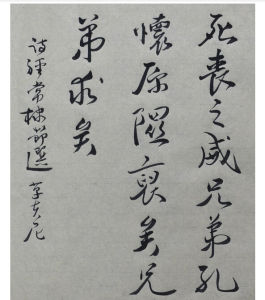 死喪之威兄弟孔
懷原隰裒矣兄
弟求矣
詩經常棣節選